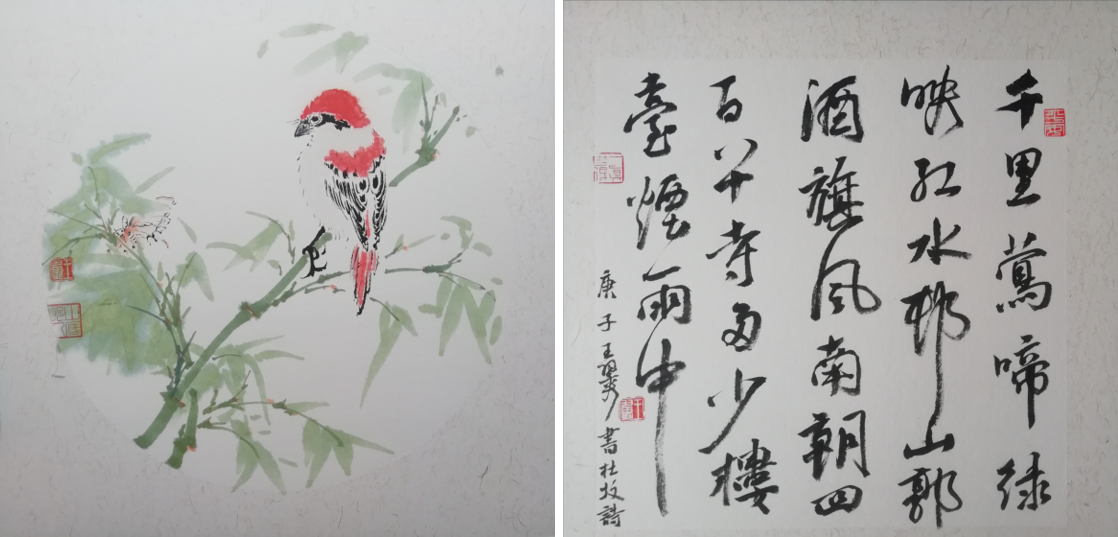 千里鶯啼緑
映紅水邨山郭
酒旗風南朝四
百八十寺多少樓
臺煙雨中
庚子王書杜牧詩